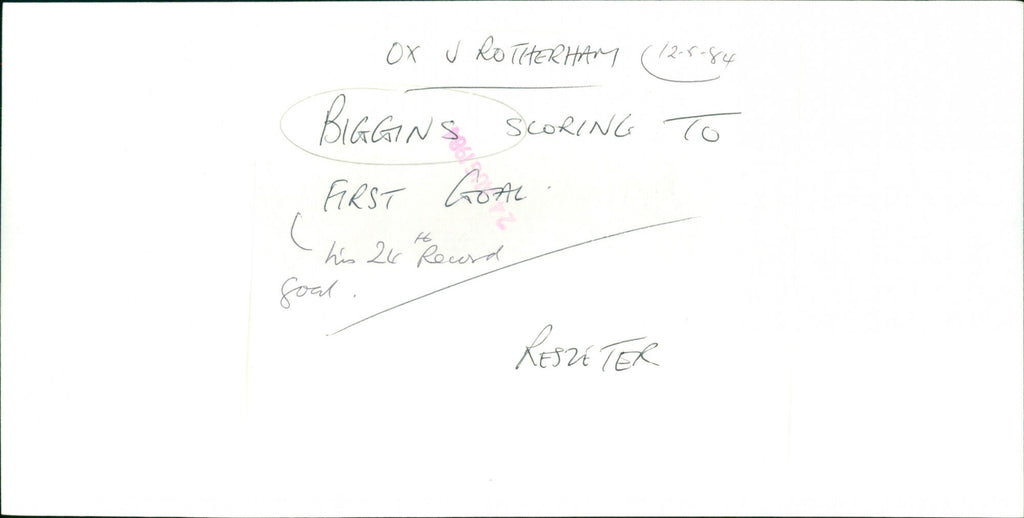 OX V ROTHERHAM (12-5-84
BIGGINS SCORING TO
FIRST GOAL.
his 24th Record
goal.
RESZETER